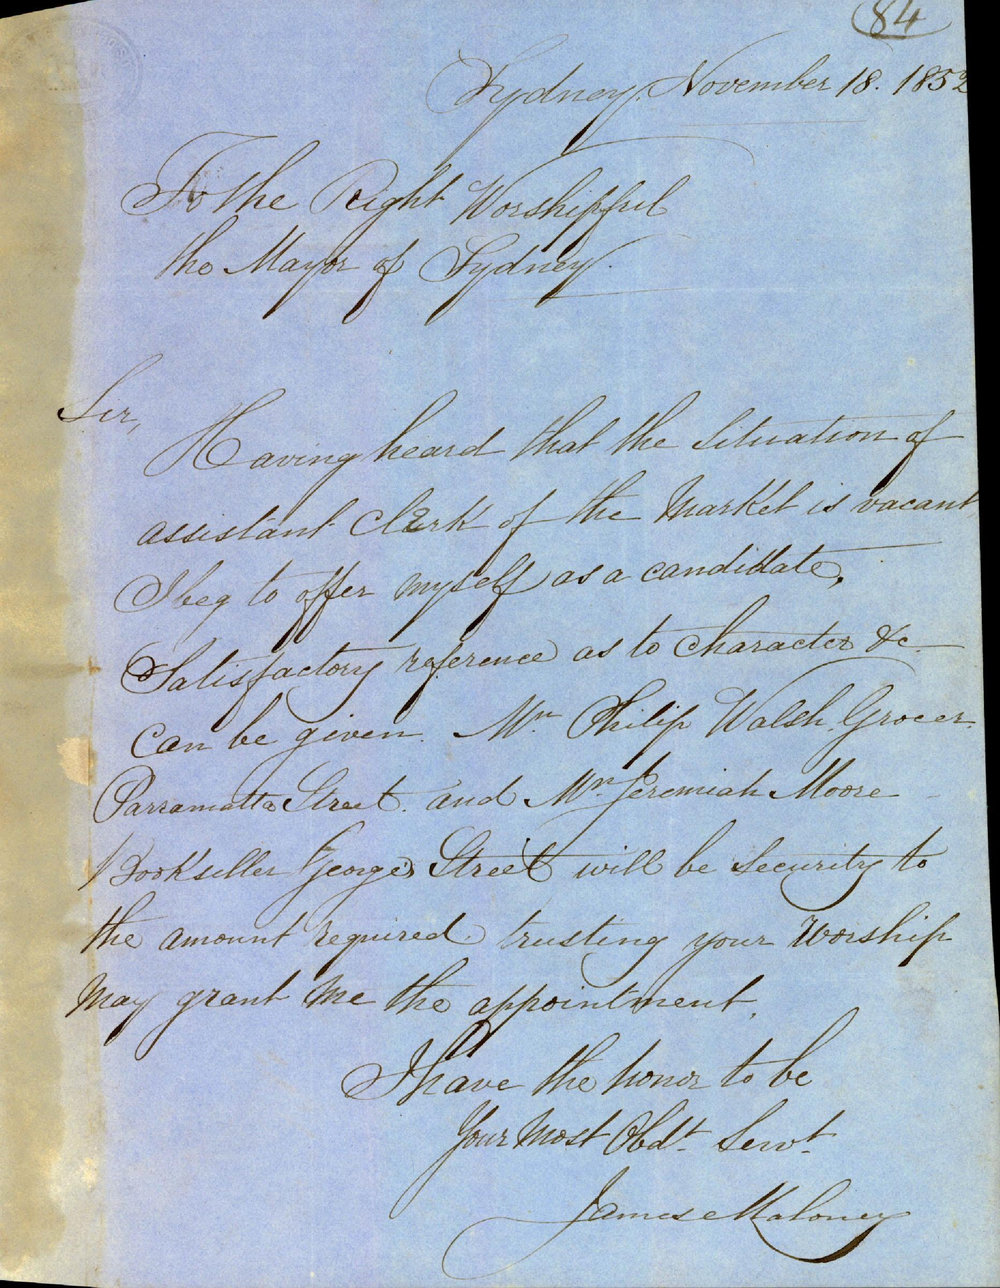 84
Sydney, November 18. 1852
To the Right Worshipful
the Mayor of Sydney.
Sir,
Having heard that the Situation of
assistant Clerk of the Market is vacant
I beg to offer myself as a candidate,
Satisfactory reference as to Character &c.
Can be given. Mr. Philip Walsh, Grocer,
Parramatta Street. and Mr. Jeremiah Moore
Bookseller George's Street will be Security to
the amount required. trusting your Worship
May grant Me the appointment.
I have the honor to be
Your Most Obdt. Servt.
James Maloney